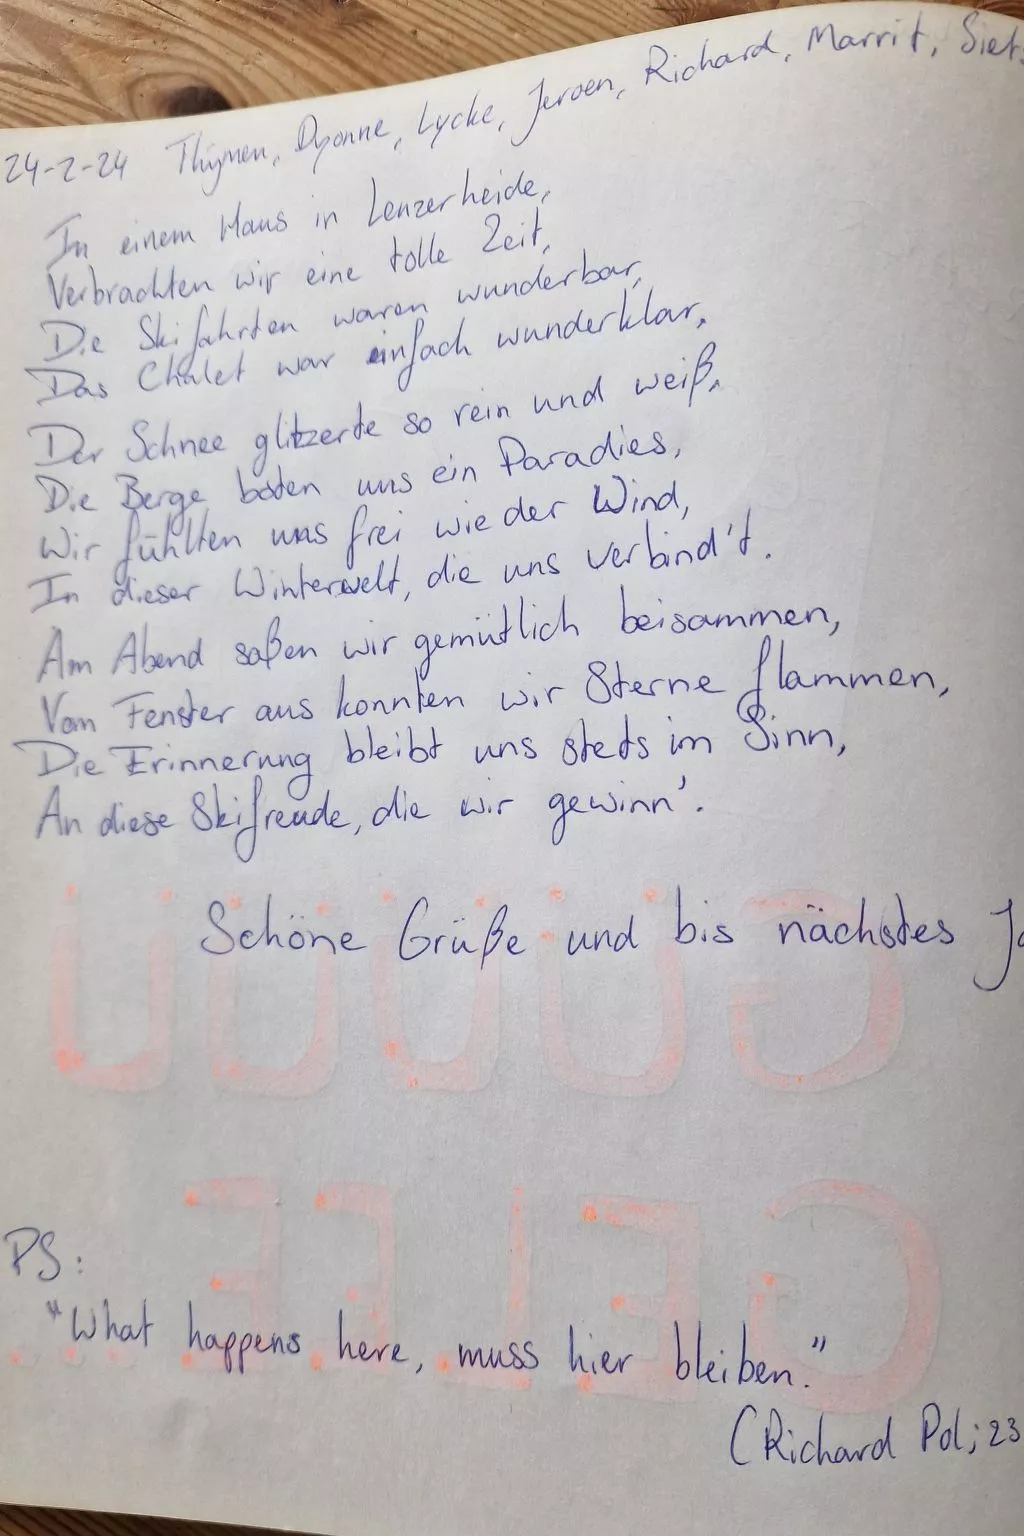 24-2-24 Thijmen, Dyonne, Lycke, Jeroen, Richard, Marrit,
In einem Haus in Lenzerheide,
Verbrachten wir eine tolle Zeit,
Die Skifahrten waren wunderbar,
Das Chalet war einfach wunderklar,
Der Schnee glitzerte so rein und weiß,
Die Berge boten uns ein Paradies,
Wir fühlten uns frei wie der Wind,
In dieser Winterwelt, die uns verbind't.
Am Abend saßen wir gemütlich beisammen,
Vom Fenster aus konnten wir Sterne flammen,
Die Erinnerung bleibt uns stets im Sinn,
An diese Skifreude, die wir gewinn'.
Schöne Grüße und bis nächstes
PS:
"What happens here, muss hier bleiben."
(Richard Pol; 23